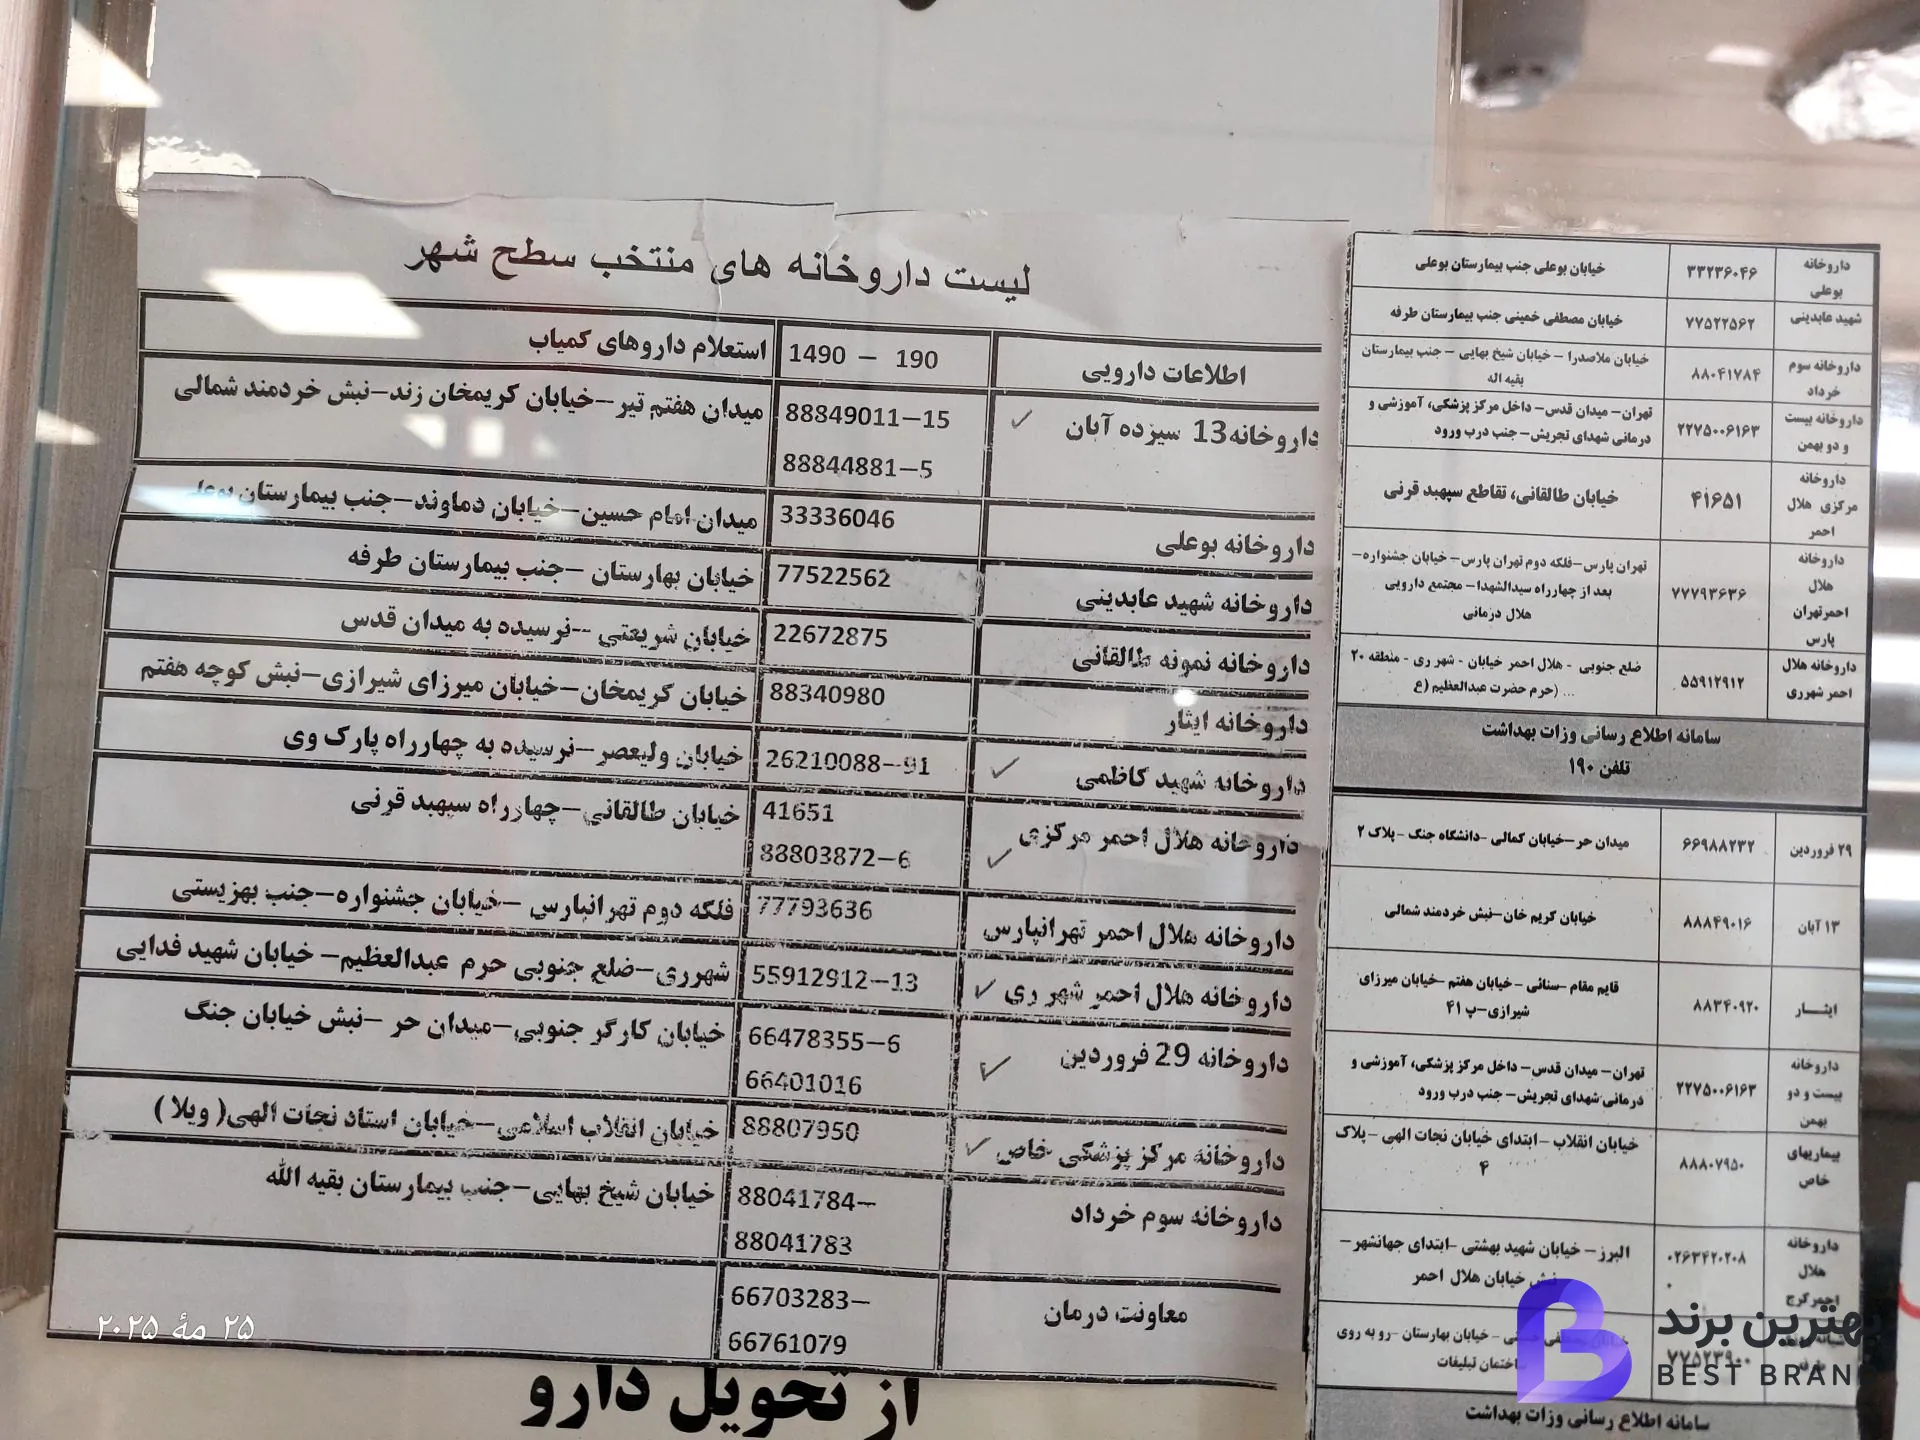 لیست داروخانه های منتخب سطح شهر
اطلاعات دارویی
1490 – 190
استعلام داروهای کمیاب
داروخانه13 سیزده آبان ✓
88849011–15
88844881–5
میدان هفتم تیر–خیابان کریمخان زند–نبش خردمند شمالی
داروخانه بوعلی
33336046
میدان امام حسین–خیابان دماوند–جنب بیمارستان بوعلی
داروخانه شهید عابدینی
77522562
خیابان بهارستان –جنب بیمارستان طرفه
داروخانه نمونه طالقانی
22672875
خیابان شریعتی –-نرسیده به میدان قدس
داروخانه ایثار
88340980
خیابان کریمخان–خیابان میرزای شیرازی–نبش کوچه هفتم
داروخانه شهید کاظمی ✓
26210088–91
خیابان ولیعصر–نرسیده به چهارراه پارک وی
داروخانه هلال احمر مرکزی ✓
41651
88803872–6
خیابان طالقانی–چهارراه سپهبد قرنی
داروخانه هلال احمر تهرانپارس
77793636
فلکه دوم تهرانپارس –خیابان جشنواره–جنب بهزیستی
داروخانه هلال احمر شهر ری ✓
55912912–13
شهرری–ضلع جنوبی حرم عبدالعظیم– خیابان شهید فدایی
داروخانه 29 فروردین ✓
66478355–6
66401016
خیابان کارگر جنوبی–میدان حر –نبش خیابان جنگ
داروخانه مرکز پزشکی خاص ✓
88807950
خیابان انقلاب اسلامی–خیابان استاد نجات الهی( ویلا )
داروخانه سوم خرداد
88041784–
88041783
خیابان شیخ بهایی–جنب بیمارستان بقیه الله
معاونت درمان
66703283–
66761079
از تحویل دارو
۲۵ مهٔ ۲۰۲۵
داروخانه
بوعلی
۳۳۲۳۶۰۴۶
خیابان بوعلی جنب بیمارستان بوعلی
شهید عابدینی
۷۷۵۲۲۵۶۲
خیابان مصطفی خمینی جنب بیمارستان طرفه
داروخانه سوم
خرداد
۸۸۰۴۱۷۸۴
خیابان ملاصدرا – خیابان شیخ بهایی – جنب بیمارستان
بقیه اله
داروخانه بیست
و دو بهمن
۲۲۷۵۰۰۶۱۶۳
تهران– میدان قدس– داخل مرکز پزشکی، آموزشی و
درمانی شهدای تجریش– جنب درب ورود
داروخانه
مرکزی هلال
احمر
۴۱۶۵۱
خیابان طالقانی، تقاطع سپهبد قرنی
داروخانه
هلال
احمرتهران
پارس
۷۷۷۹۳۶۳۶
تهران پارس–فلکه دوم تهران پارس– خیابان جشنواره–
بعد از چهارراه سیدالشهدا– مجتمع دارویی
هلال درمانی
داروخانه هلال
احمر شهرری
۵۵۹۱۲۹۱۲
ضلع جنوبی - هلال احمر خیابان - شهر ری - منطقه ۲۰
... (حرم حضرت عبدالعظیم (ع
سامانه اطلاع رسانی وزات بهداشت
تلفن ۱۹۰
۲۹ فروردین
۶۶۹۸۸۲۳۲
میدان حر–خیابان کمالی –دانشگاه جنگ –پلاک ۲
۱۳ آبان
۸۸۸۴۹۰۱۶
خیابان کریم خان–نبش خردمند شمالی
ایثـــار
۸۸۳۴۰۹۲۰
قایم مقام –سنائی – خیابان هفتم –خیابان میرزای
شیرازی–پ ۴۱
داروخانه
بیست و دو
بهمن
۲۲۷۵۰۰۶۱۶۳
تهران– میدان قدس– داخل مرکز پزشکی، آموزشی و
درمانی شهدای تجریش– جنب درب ورود
بیماریهای
خاص
۸۸۸۰۷۹۵۰
خیابان انقلاب –ابتدای خیابان نجات الهی –پلاک
۴
داروخانه
هلال
احمرکرج
۰۲۶۳۴۲۰۲۰۸
۰
البرز – خیابان شهید بهشتی –ابتدای جهانشهر–
نبش خیابان هلال احمر
۷۷۵۲۳۹۰۰
– خیابان بهارستان –رو به روی
ساختمان تبلیغات
سامانه اطلاع رسانی وزات بهداشت
بهترین برند
BEST BRAN